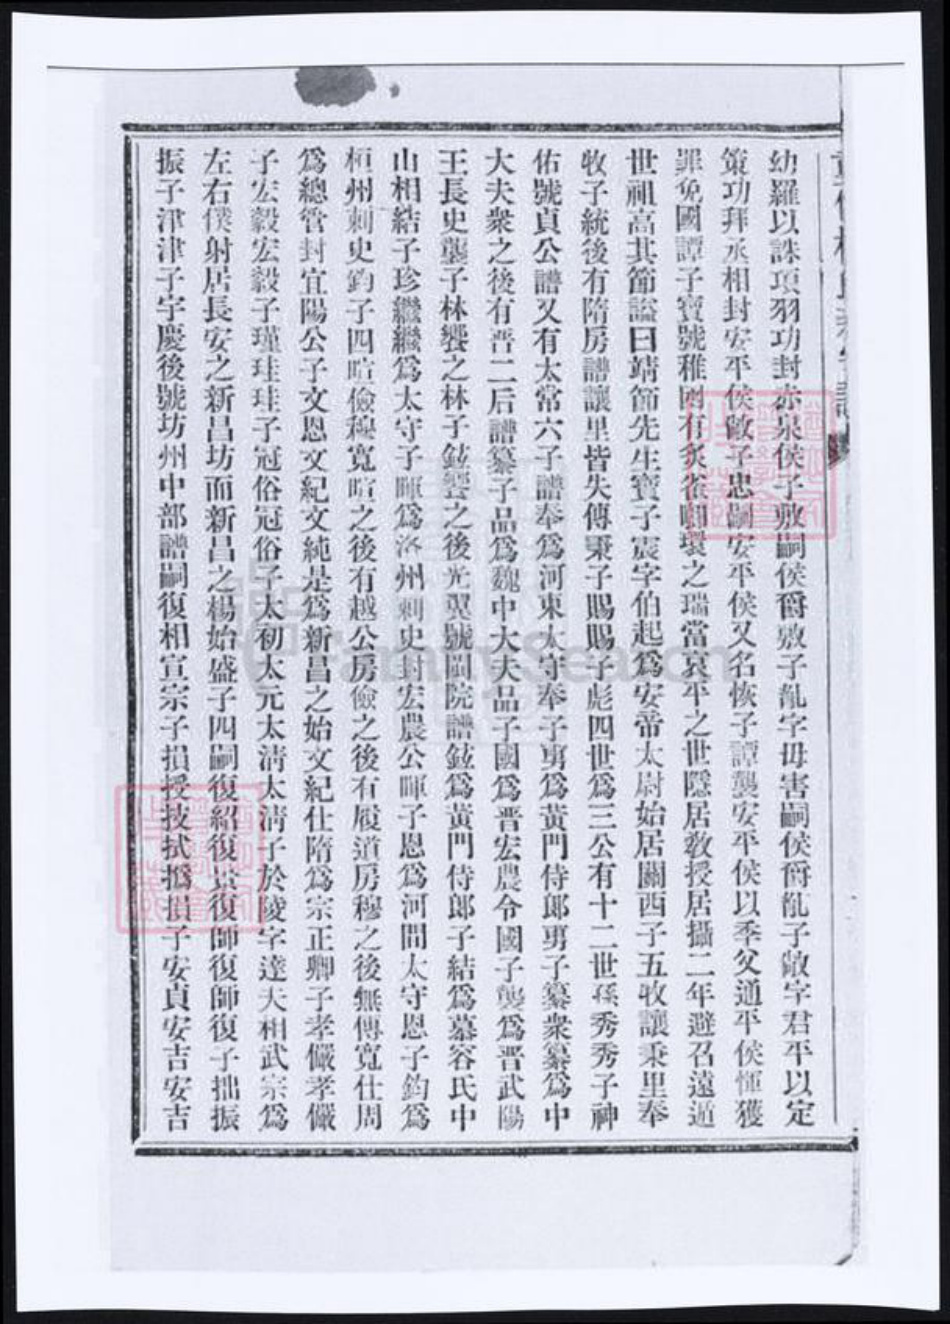 幼羅以誅項羽功封赤泉侯子敷嗣侯爵敷子胤字毋害嗣侯爵胤子敞字君平以定
策功拜丞相封安平侯敞子忠嗣安平侯又名恢子譚襲安平侯以季父通平侯惲獲
罪免國譚子寶號稚囦有炙雀啣環之瑞當哀平之世隱居敎授居攝二年避召遠遁
世祖高其節謚曰靖節先生寶子震字伯起爲安帝太尉始居關西子五牧讓秉里奉
牧子統後有隋房譜讓里皆失傳秉子賜賜子彪四世爲三公有十二世孫秀秀子神
佑號貞公譜又有太常六子譜奉爲河東太守奉子旉爲黃門侍郞旉子纂衆纂爲中
大夫衆之後有晋二后譜纂子品爲魏中大夫品子國爲晋宏農令國子襲爲晋武陽
王長史襲子林饗之林子鉉譻之後光翼號閩院譜鉉爲黃門侍郞子結爲慕容氏中
山相結子珍繼繼爲太守子暉爲洛州刺史封宏農公暉子恩爲河間太守恩子鈞爲
桓州刺史鈞子四暄儉穆寬暄之後有越公房儉之後有履道房穆之後無傳寬仕周
爲總管封宜陽公子文恩文紀文純是爲新昌之始文紀仕隋爲宗正卿子孝儼孝儼
子宏毅宏毅子瑾珪珪子冠俗冠俗子太初太元太淸太淸子於陵字達夫相武宗爲
左右僕射居長安之新昌坊而新昌之楊始盛子四嗣復紹復景復師復師復子拙振
振子津津子宇慶後號坊州中部譜嗣復相宣宗子損授技拭撝損子安貞安吉安吉
FamilySearch